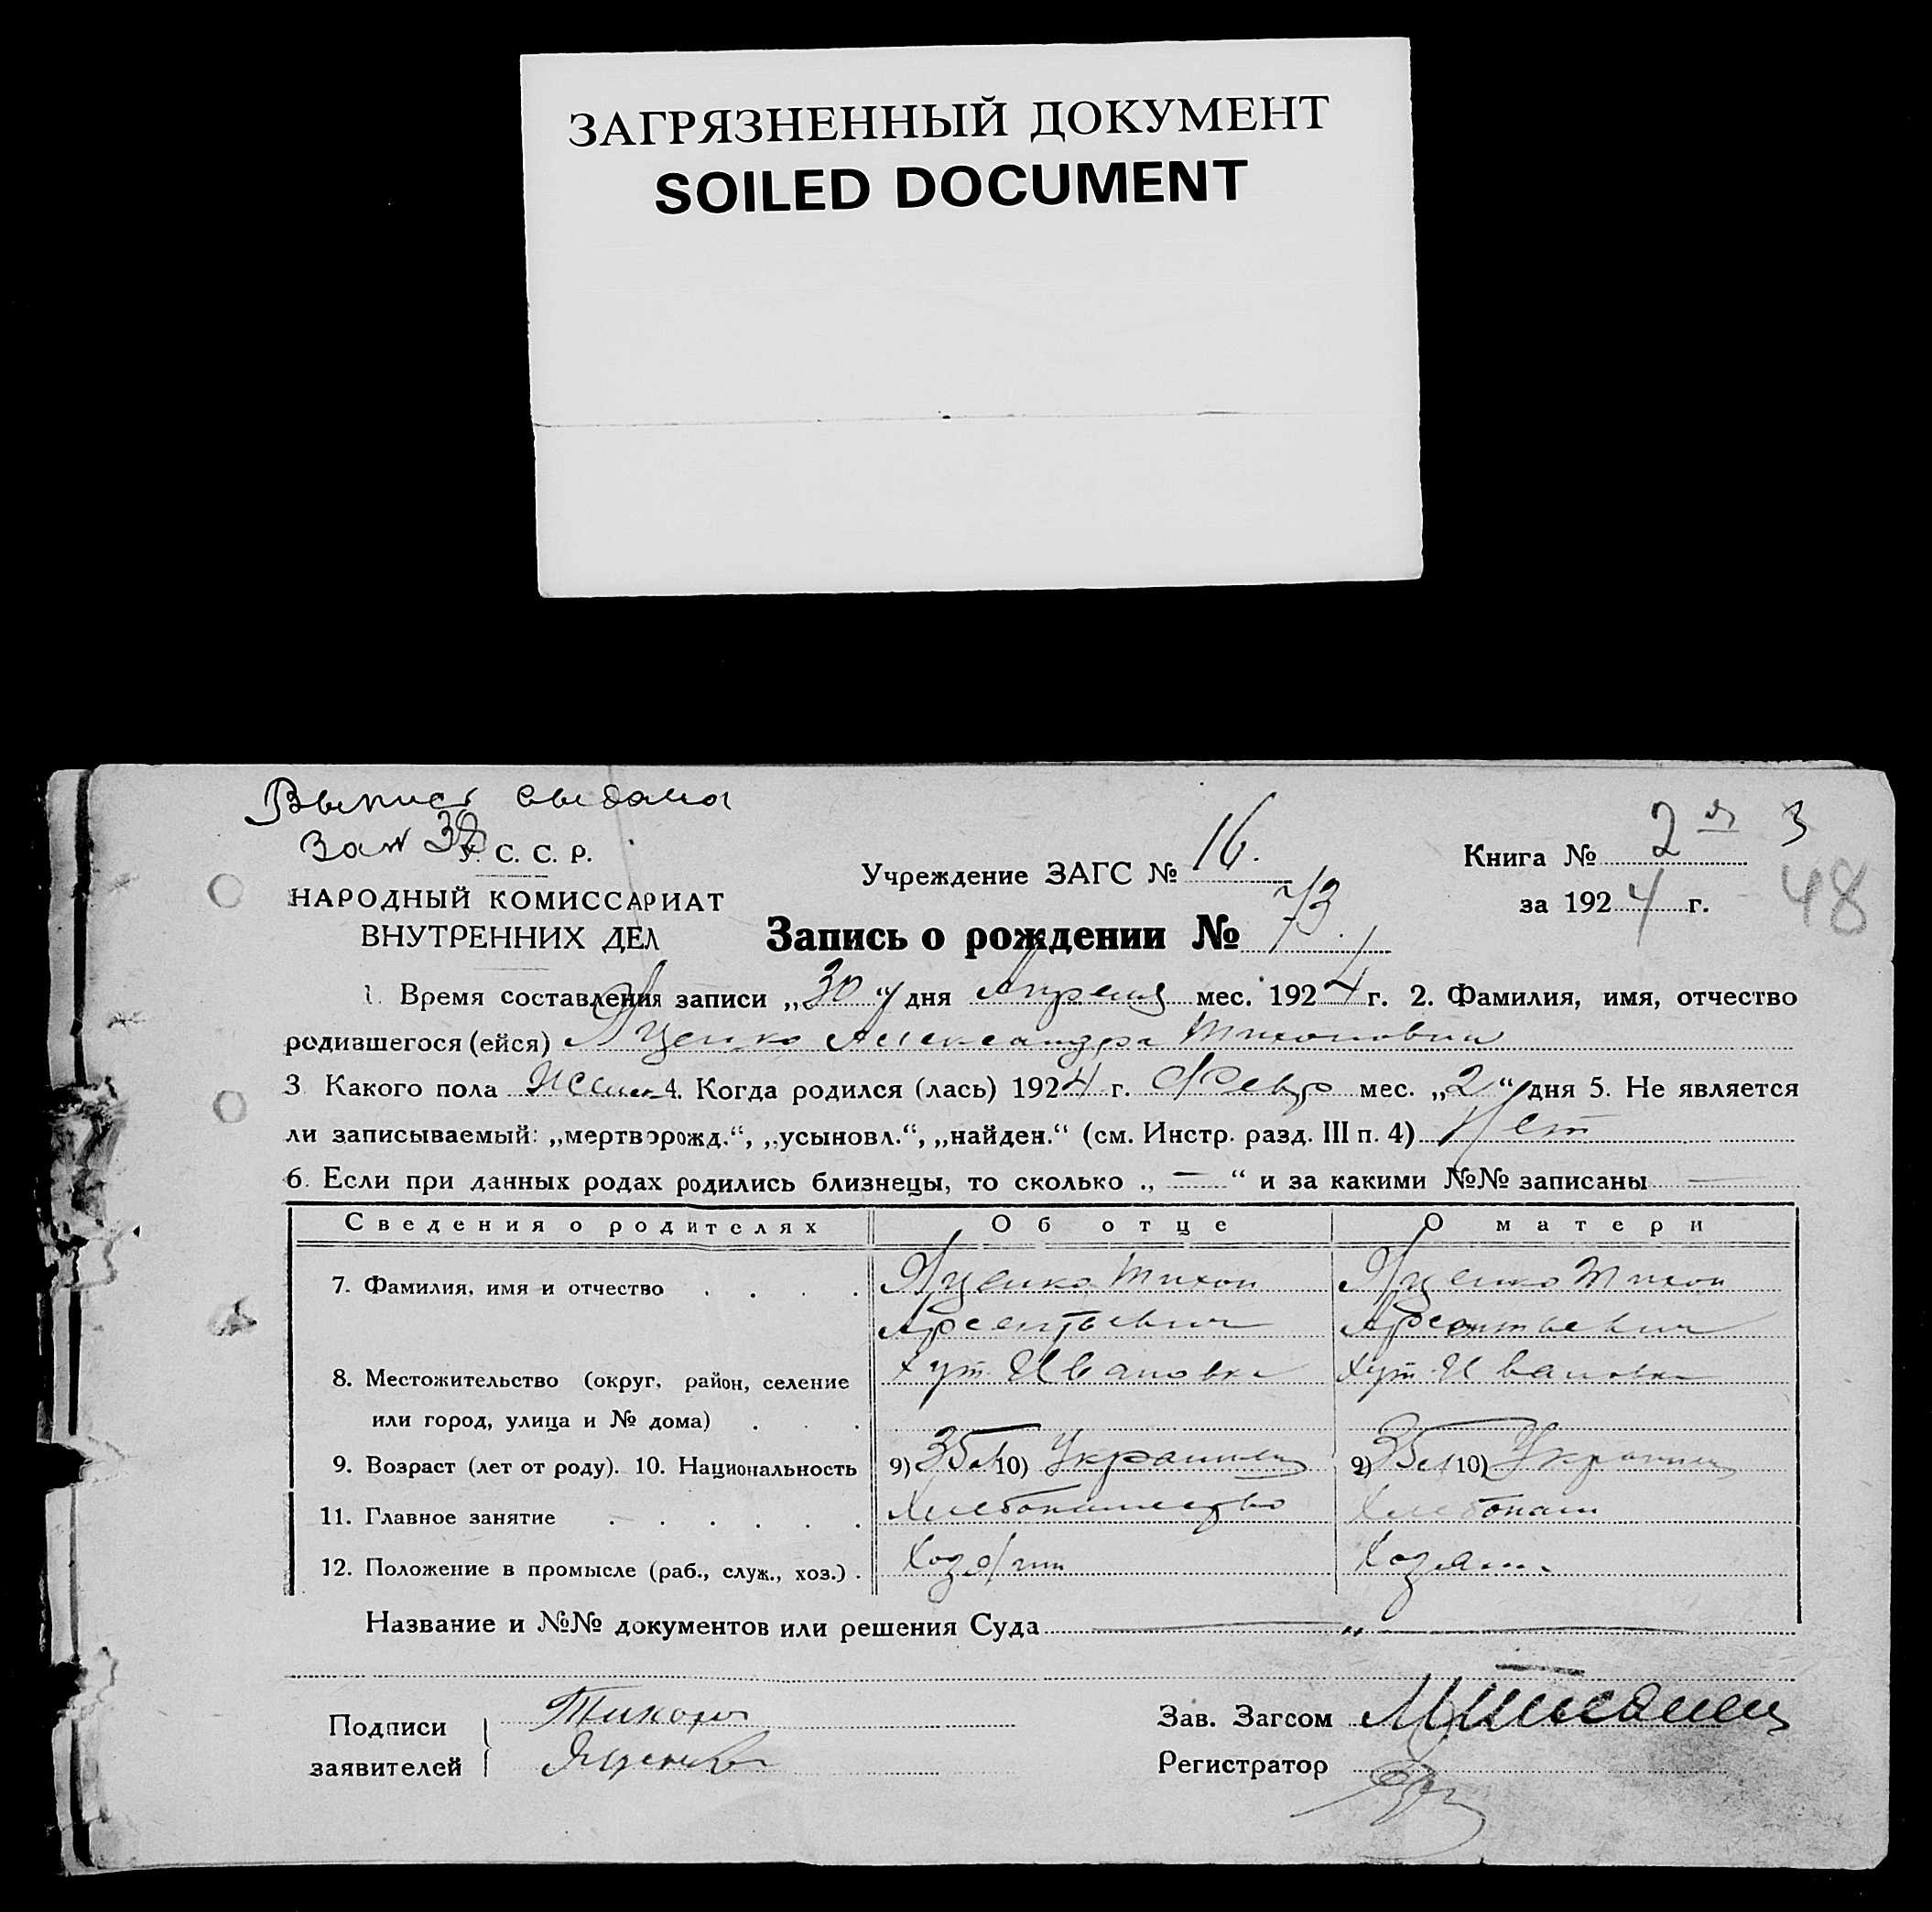 ЗАГРЯЗНЕННЫЙ ДОКУМЕНТ
SOILED DOCUMENT
Выпись выдана
С. С. Р.
НАРОДНЫЙ КОМИССАРИАТ
ВНУТРЕННИХ ДЕЛ
Учреждение ЗАГС № 16.
Запись о рождении № 73.
Книга № 2 я 3
за 1924 г. 48
1. Время составления записи „30“ дня Апреля мес. 1924 г. 2. Фамилия, имя, отчество
родившегося (ейся) Яценко Александра Тихоновна
3. Какого пола Женск 4. Когда родился (лась) 1924 г. Февр мес. „2“ дня 5. Не является
ли записываемый: „мертворожд.“, „усыновл.“, „найден.“ (см. Инстр. разд. III п. 4) Нет
6. Если при данных родах родились близнецы, то сколько „ — “ и за какими №№ записаны —
Сведения о родителях Об отце О матери
7. Фамилия, имя и отчество Яценко Тихон Яценко Тихон
Арсентьевич Арсентьевич
8. Местожительство (округ, район, селение Хут. Ивановка Хут. Ивановка
или город, улица и № дома)
9. Возраст (лет от роду). 10. Национальность 9) 35 л 10) Украинец 9) 35 л 10) Украинец
11. Главное занятие Хлебопашество Хлебопаш
12. Положение в промысле (раб., служ., хоз.) Хозяин Хозяин
Название и №№ документов или решения Суда — „ —
Подписи
заявителей
Тихон
Яценко
Зав. Загсом
Регистратор